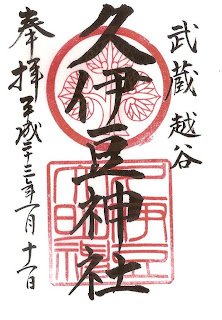 武蔵 越谷
久伊豆神社
奉拝 平成二十三年一月十一日